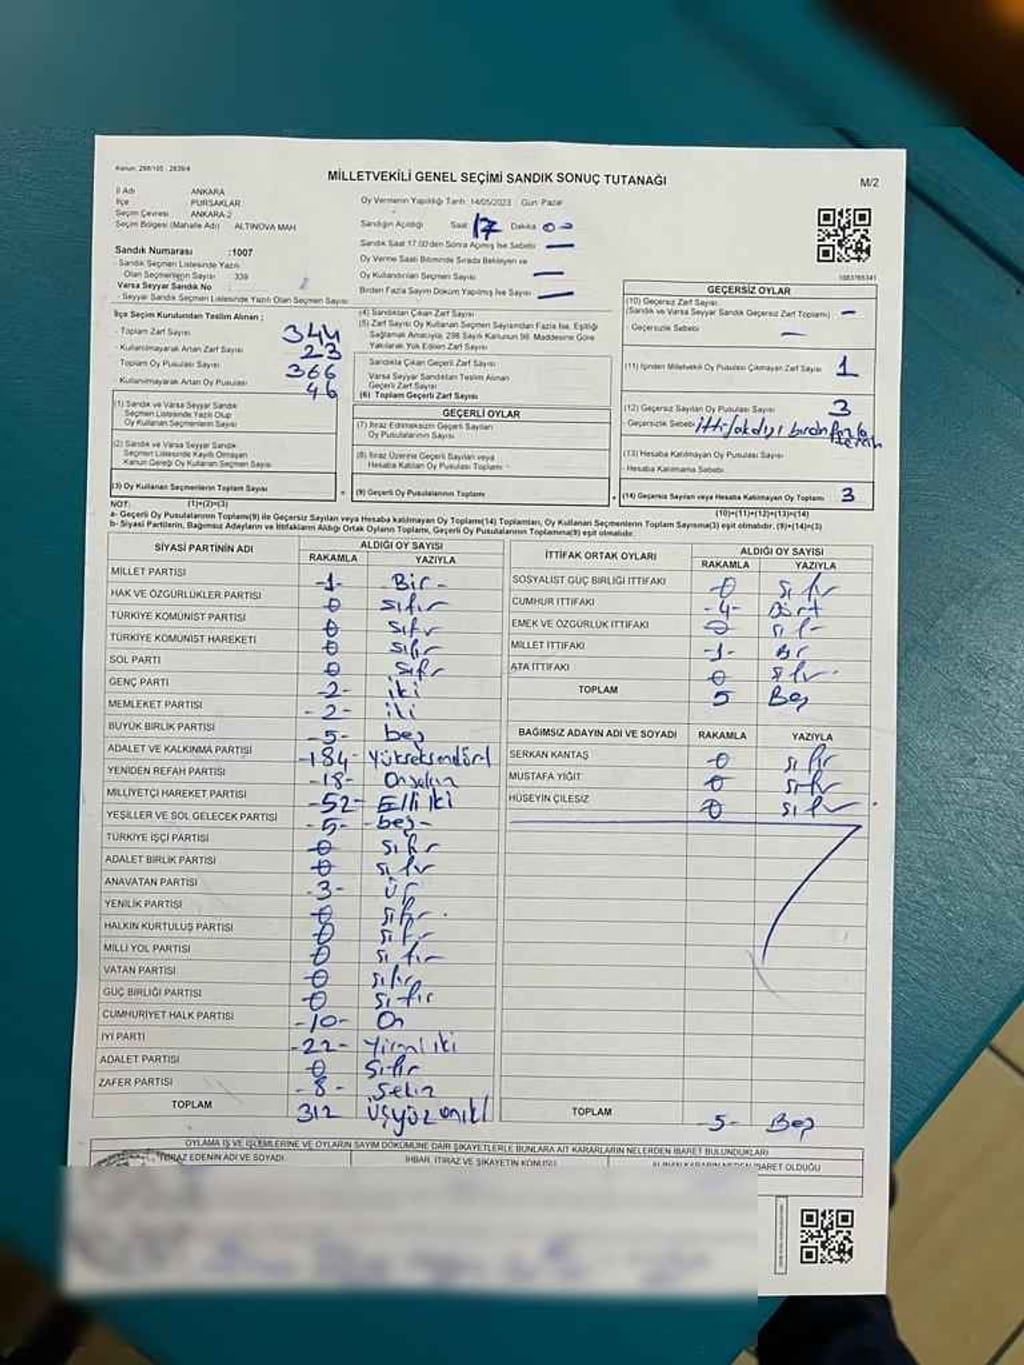 Kanun: 298/105 - 2839/4
MİLLETVEKİLİ GENEL SEÇİMİ SANDIK SONUÇ TUTANAĞI
M/2
İl Adı : ANKARA
İlçe : PURSAKLAR
Seçim Çevresi : ANKARA-2
Seçim Bölgesi (Mahalle Adı) : ALTINOVA MAH.
Sandık Numarası :1007
Sandık Seçmen Listesinde Yazılı
Olan Seçmenlerin Sayısı : 339
Varsa Seyyar Sandık No :
Seyyar Sandık Seçmen Listesinde Yazılı Olan Seçmen Sayısı:
Oy Vermenin Yapıldığı Tarih: 14/05/2023 Gün: Pazar
Sandığın Açıldığı Saat 17 Dakika 00
Sandık Saat 17.00'den Sonra Açılmış İse Sebebi : —
Oy Verme Saati Bitiminde Sırada Bekleyen ve
Oy Kullandırılan Seçmen Sayısı : —
Birden Fazla Sayım Döküm Yapılmış İse Sayısı : —
İlçe Seçim Kurulundan Teslim Alınan ;
- Toplam Zarf Sayısı : 344
- Kullanılmayarak Artan Zarf Sayısı : 23
- Toplam Oy Pusulası Sayısı : 366
- Kullanılmayarak Artan Oy Pusulası : 46
(1) Sandık ve Varsa Seyyar Sandık
Seçmen Listesinde Yazılı Olup
Oy Kullanan Seçmenlerin Sayısı
(2) Sandık ve Varsa Seyyar Sandık
Seçmen Listesinde Kayıtlı Olmayan
Kanun Gereği Oy Kullanan Seçmen Sayısı
(3) Oy Kullanan Seçmenlerin Toplam Sayısı
(1)+(2)=(3)
(4) Sandıktan Çıkan Zarf Sayısı
(5) Zarf Sayısı Oy Kullanan Seçmen Sayısından Fazla İse, Eşitliği
Sağlamak Amacıyla, 298 Sayılı Kanunun 98. Maddesine Göre
Yakılarak Yok Edilen Zarf Sayısı
Sandıkta Çıkan Geçerli Zarf Sayısı
Varsa Seyyar Sandıktan Teslim Alınan
Geçerli Zarf Sayısı
(6) Toplam Geçerli Zarf Sayısı
GEÇERLİ OYLAR
(7) İtiraz Edilmeksizin Geçerli Sayılan
Oy Pusulalarının Sayısı
(8) İtiraz Üzerine Geçerli Sayılan veya
Hesaba Katılan Oy Pusulası Toplamı
= (9) Geçerli Oy Pusulalarının Toplamı
GEÇERSİZ OYLAR
(10) Geçersiz Zarf Sayısı
(Sandık ve Varsa Seyyar Sandık Geçersiz Zarf Toplamı) : —
- Geçersizlik Sebebi : —
(11) İçinden Milletvekili Oy Pusulası Çıkmayan Zarf Sayısı : 1
(12) Geçersiz Sayılan Oy Pusulası Sayısı : 3
- Geçersizlik Sebebi: ittifakdışı birden fazla tercih
(13) Hesaba Katılmayan Oy Pusulası Sayısı :
- Hesaba Katılmama Sebebi :
+ (14) Geçersiz Sayılan veya Hesaba Katılmayan Oy Toplamı : 3
(10)+(11)+(12)+(13)=(14)
NOT:
a- Geçerli Oy Pusulalarının Toplamı(9) ile Geçersiz Sayılan veya Hesaba katılmayan Oy Toplamı(14) Toplamları, Oy Kullanan Seçmenlerin Toplam Sayısına(3) eşit olmalıdır. (9)+(14)=(3)
b- Siyasi Partilerin, Bağımsız Adayların ve İttifakların Aldığı Ortak Oyların Toplamı, Geçerli Oy Pusulalarının Toplamına(9) eşit olmalıdır.
SİYASİ PARTİNİN ADI ALDIĞI OY SAYISI
RAKAMLA YAZIYLA
MİLLET PARTİSİ -1- Bir-
HAK VE ÖZGÜRLÜKLER PARTİSİ 0 sıfır
TÜRKİYE KOMÜNİST PARTİSİ 0 sıfır
TÜRKİYE KOMÜNİST HAREKETİ 0 sıfır
SOL PARTİ 0 sıfır
GENÇ PARTİ -2- iki
MEMLEKET PARTİSİ -2- iki
BÜYÜK BİRLİK PARTİSİ -5- beş
ADALET VE KALKINMA PARTİSİ -184- Yükseksendört
YENİDEN REFAH PARTİSİ -18- Onsekiz
MİLLİYETÇİ HAREKET PARTİSİ -52- Elli iki
YEŞİLLER VE SOL GELECEK PARTİSİ -5- -beş-
TÜRKİYE İŞÇİ PARTİSİ 0 sıfır
ADALET BİRLİK PARTİSİ 0 sıfır
ANAVATAN PARTİSİ -3- Üç
YENİLİK PARTİSİ 0 sıfır
HALKIN KURTULUŞ PARTİSİ 0 sıfır
MİLLİ YOL PARTİSİ 0 sıfır
VATAN PARTİSİ 0 sıfır
GÜÇ BİRLİĞİ PARTİSİ 0 sıfır
CUMHURİYET HALK PARTİSİ -10- On
İYİ PARTİ -22- Yirmi iki
ADALET PARTİSİ 0 Sıfır
ZAFER PARTİSİ -8- Sekiz
TOPLAM 312 Üçyüz oniki
İTTİFAK ORTAK OYLARI ALDIĞI OY SAYISI
RAKAMLA YAZIYLA
SOSYALİST GÜÇ BİRLİĞİ İTTİFAKI 0 sıfır
CUMHUR İTTİFAKI -4- Dört
EMEK VE ÖZGÜRLÜK İTTİFAKI 0 sıfır
MİLLET İTTİFAKI -1- Bir
ATA İTTİFAKI 0 sıfır
TOPLAM 5 Beş
BAĞIMSIZ ADAYIN ADI VE SOYADI RAKAMLA YAZIYLA
SERKAN KANTAŞ 0 sıfır
MUSTAFA YİĞİT 0 sıfır
HÜSEYİN ÇİLESİZ 0 sıfır
TOPLAM -5- Beş
OYLAMA İŞ VE İŞLEMLERİNE VE OYLARIN SAYIM DÖKÜMÜNE DAİR ŞİKAYETLERLE BUNLARA AİT KARARLARIN NELERDEN İBARET BULUNDUKLARI
İTİRAZ EDENİN ADI VE SOYADI İHBAR, İTİRAZ VE ŞİKAYETİN KONUSU ALINAN KARARIN NEDEN İBARET OLDUĞU